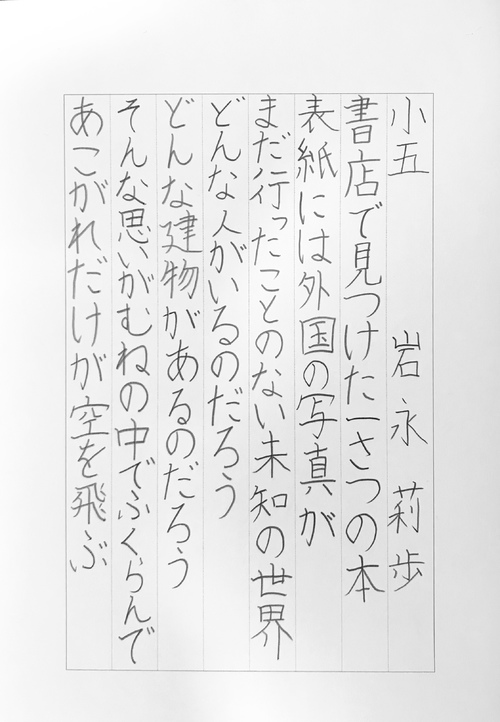 小五 岩永 莉歩
書店で見つけた一さつの本
表紙には外国の写真が
まだ行ったことのない未知の世界
どんな人がいるのだろう
どんな建物があるのだろう
そんな思いがむねの中でふくらんで
あこがれだけが空を飛ぶ